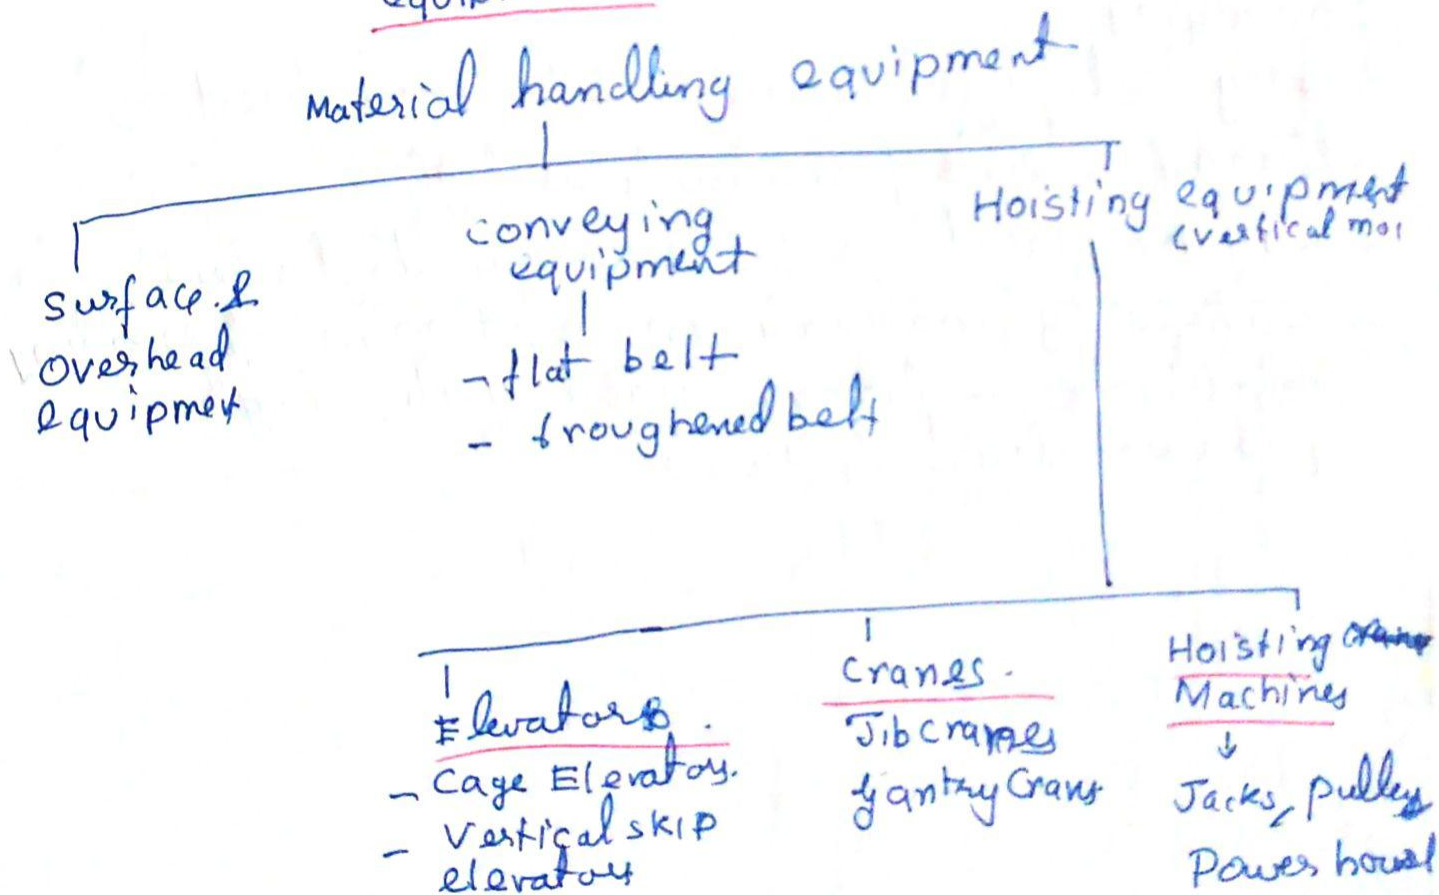 Material handling equipment
Surface &
overhead
equipmet
conveying
equipment
- flat belt
- troughened belt
Hoisting equipment
(vertical
Elevators.
- Cage Elevators.
- Vertical skip
elevators
Cranes.
Jib cranes
Gantry Crans
Hoisting
Machines
↓
Jacks, pulleys
Power